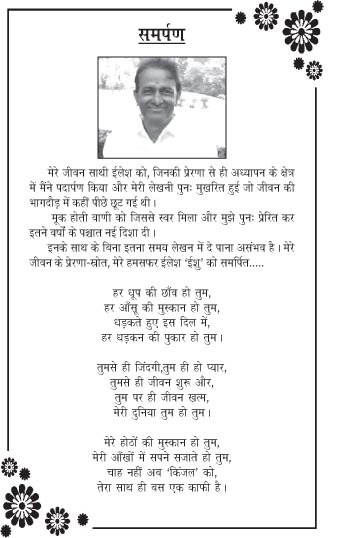 समर्पण
मेरे जीवन साथी ईलेश को, जिनकी प्रेरणा से ही अध्यापन के क्षेत्र
में मैंने पदार्पण किया और मेरी लेखनी पुनः मुखरित हुई जो जीवन की
भागदौड़ में कहीं पीछे छूट गई थी।
मूक होती वाणी को जिससे स्वर मिला और मुझे पुनः प्रेरित कर
इतने वर्षों के पश्चात नई दिशा दी।
इनके साथ के बिना इतना समय लेखन में दे पाना असंभव है। मेरे
जीवन के प्रेरणा-स्रोत, मेरे हमसफर ईलेश 'ईशु' को समर्पित.....
हर धूप की छाँव हो तुम,
हर आँसू की मुस्कान हो तुम,
धड़कते हुए इस दिल में,
हर धड़कन की पुकार हो तुम।
तुमसे ही जिंदगी,तुम ही हो प्यार,
तुमसे ही जीवन शुरू और,
तुम पर ही जीवन खत्म,
मेरी दुनिया तुम हो तुम।
मेरे होठों की मुस्कान हो तुम,
मेरी आँखों में सपने सजाते हो तुम,
चाह नहीं अब 'किंजल' को,
तेरा साथ ही बस एक काफी है।